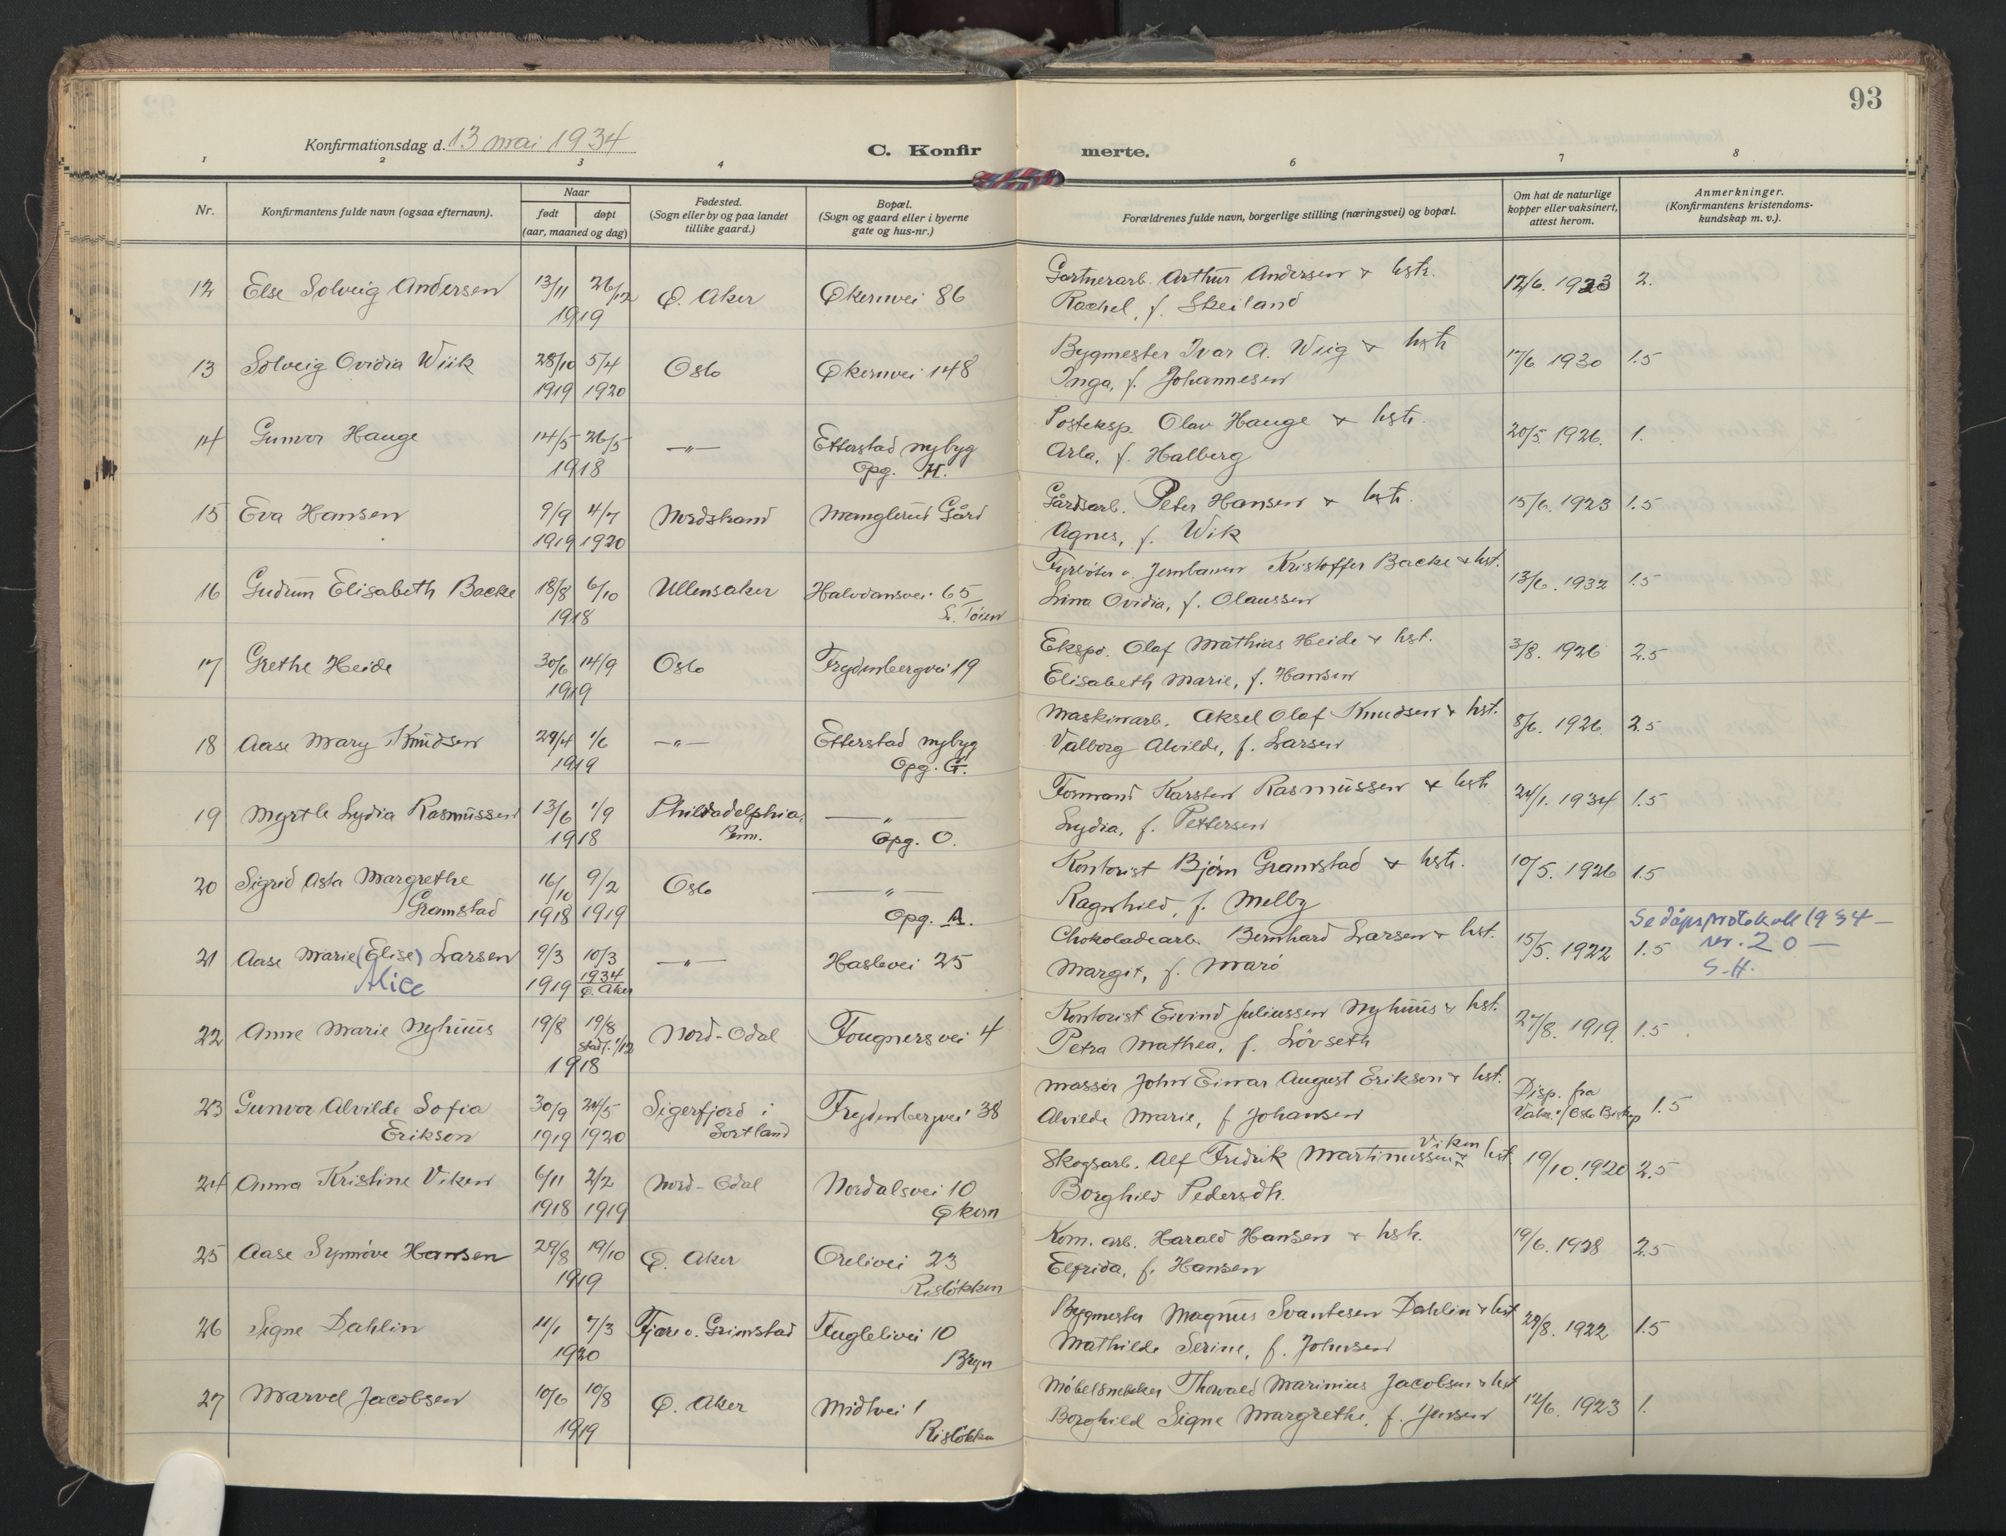 93
Konfirmationsdag d. 13 mai 1934
C. Konfirmerte.
1 2 3 4 5 6 7 8
Nr.
Konfirmantens fulde navn (ogsaa efternavn).
Naar
født døpt
(aar, maaned og dag)
Fødested.
(Sogn eller by og paa landet
tillike gaard.)
Bopæl.
(Sogn og gaard eller i byerne
gate og hus-nr.)
Forældrenes fulde navn, borgerlige stilling (næringsvei) og bopæl.
Om hat de naturlige
kopper eller vaksinert,
attest herom.
Anmerkninger.
(Konfirmantens kristendoms-
kundskap m. v.).
12 Else Solveig Andersen 13/11 26/12 Ø. Aker Økernvei 86 Gartnerarb. Arthur Andersen & hstr. 12/6. 1923 2.
1919 Rachel, f. Skeiland
13 Solveig Ovidia Wiik 28/10 5/4 Oslo Økernvei 148 Bygmester Ivar A. Wiig & hstr. 17/6 1930 1.5
1919 1920 Inga, f. Johannesen
14 Gunvor Hauge 14/5 26/5 —〃— Etterstad nybyg Posteksp. Olav Hauge & hstr. 20/5. 1926. 1.
1918 Opg. H. Arla, f. Halberg
15 Eva Hansen 9/9 4/7 Nordstrand Manglerud Gård Gårdsarb. Peter Hansen & hstr. 15/6. 1923 1.5
1919 1920 Agnes, f. Wik
16 Gudrun Elisabeth Backe 18/8 6/10 Ullensaker Halvdansvei 65 Fyrbøter v. Jernbanen Kristoffer Backe & hst. 13/6. 1932 1.5
1918 L. Tøien Lina Ovidia, f. Olaussen
17 Grethe Heide 30/6 14/9 Oslo Frydenbergvei 19 Ekspd. Olaf Mathias Heide & hst. 3/8. 1926 2.5
1919 Elisabeth Marie, f. Hansen
18 Aase Mary Knudsen 29/4 1/6 —〃— Etterstad nybyg Maskinarb. Aksel Olaf Knudsen & hst. 8/6. 1926. 2.5
1919 Opg. G. Valborg Alvilde, f. Larsen
19 Myrtle Lydia Rasmussen 13/6 1/9 Philadadelphia, —〃— Formand Karsten Rasmussen & hstr. 24/1. 1934 1.5
1918 Penn. Opg. O. Lydia, f. Pettersen
20 Sigrid Asta Margrethe 16/10 9/2 Oslo —〃— Kontorist Bjørn Gramstad & hstr. 10/5. 1926 1.5
Gramstad 1918 1919 Opg. A. Ragnhild, f. Melby
Se dåpsprotokoll 1934 —
21 Aase Marie (Elise) Larsen 9/3 10/3 —〃— Haslevei 25 Chokoladearb. Bernhard Larsen & hst. 15/5. 1922 1.5 nr. 20 —
Alice 1919 1934 Ø. Aker Margit, f. Marø S.H.
22 Anne Marie Nyhuus 19/8 19/8 Nord-Odal Fougnersvei 4 Kontorist Eivind Juliussen Nyhuus & hst. 27/8. 1919. 1.5
stadf. 1/12
1918 Petra Mathea, f. Lövseth
23 Gunvor Alvilde Sofia 30/9 24/5 Sigerfjord i Frydenbergvei 38 Massör John Einar August Erikson & hst. Disp. fra 1.5
Erikson 1919 1920 Sortland Alvilde Marie, f Johansen Vaks. f. Oslo Biskop
24 Anna Kristine Viken 6/11 2/2 Nord-Odal Nordalsvei 10 Skogsarb. Alf Fredrik Martinussen Viken & hst. 19/10. 1920 2.5
1918 1919 Økern Borghild Pedersdtr.
25 Aase Synnöve Hansen 29/8 19/10 Ø. Aker Orelivei 23 Kom. arb. Harald Hansen & hstr. 19/6. 1928 2.5
1919 Risløkken Elfrida, f. Hansen
26 Signe Dahlin 11/1 7/3 Fjære v. Grimstad Fuglelivei 10 Bygmester Magnus Svantesen Dahlin & hst 29/8. 1922 1.5
1920 Bryn Mathilde Serine, f. Johnsen
27 Marvel Jacobsen 10/6 10/8 Ø. Aker Midtvei 1 Møbelsnekker Thorvald Marinius Jacobsen & hst 12/6. 1923 1.
1919 Risløkken Borghild Signe Margrethe, f. Jensen